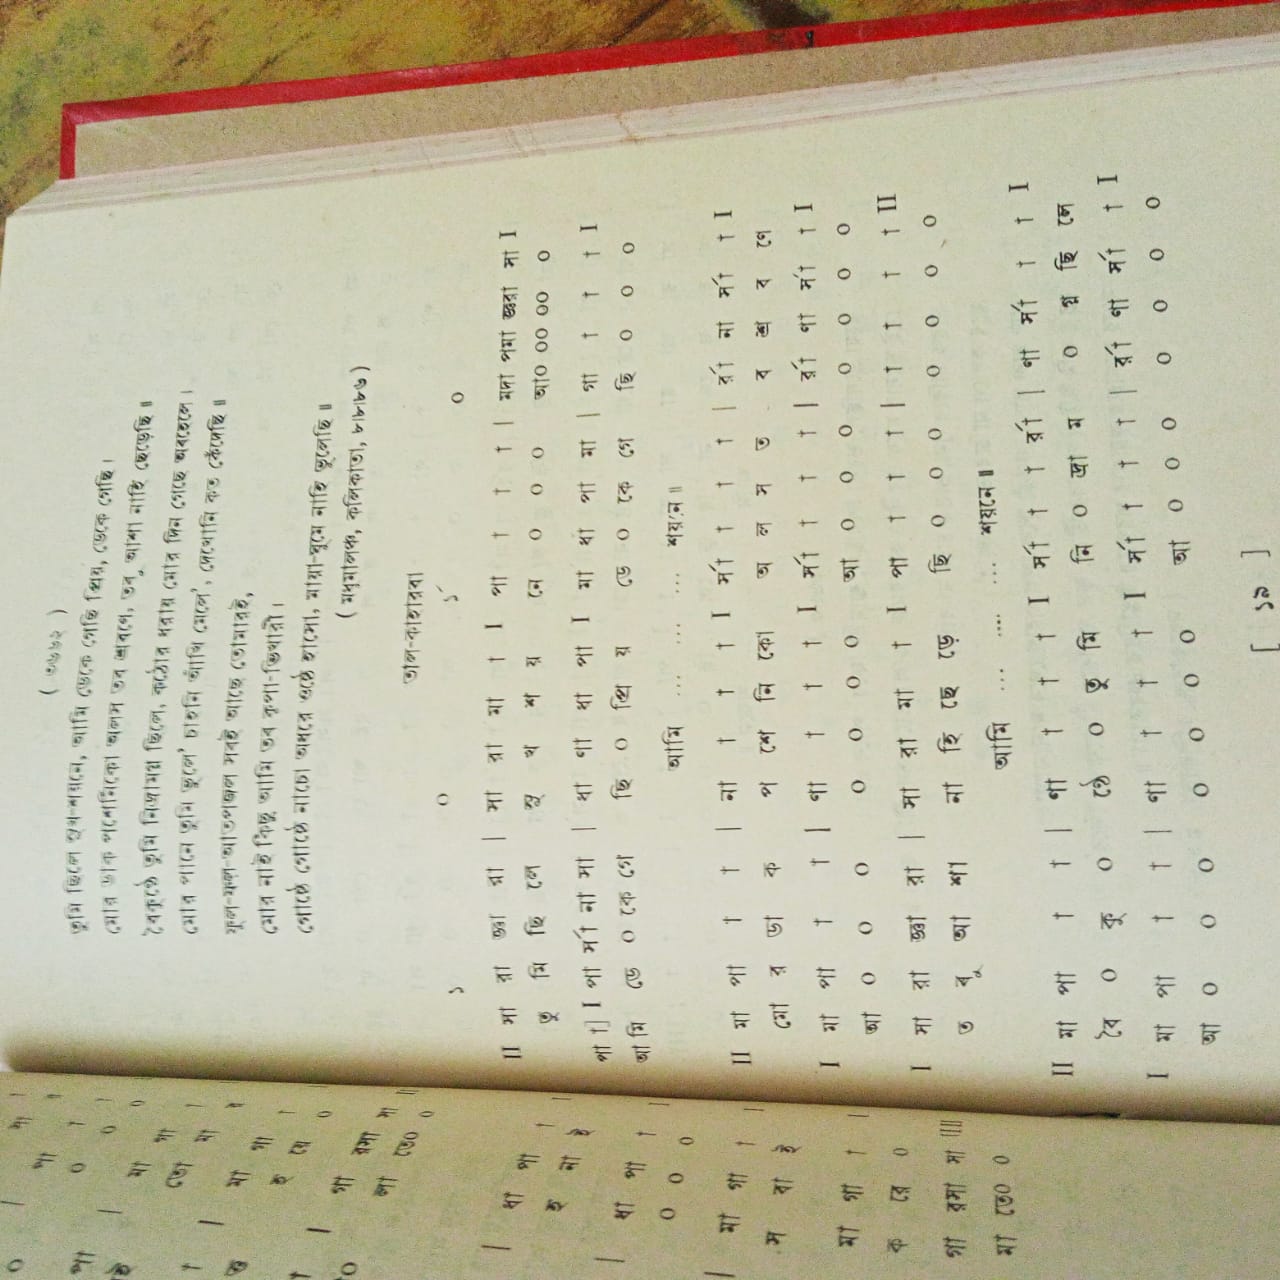 ( ৩৬৬২ )
তুমি ছিলে সুখ-শয়নে, আমি ডেকে গেছি প্রিয়, ডেকে গেছি।
মোর ডাক পশেনিকো অলস তব শ্রবণে, তবু আশা নাহি ছেড়েছি॥
বৈকুণ্ঠে তুমি নিদ্রামগ্ন ছিলে, কঠোর দরায় মোর দিন গেছে অবহেলে।
মোর পানে তুমি ভুলে' চাহনি আঁখি মেলে', দেখোনি কত কেঁদেছি॥
ফুল-ফল-আতপজল সবই আছে তোমারই,
মোর নাই কিছু আমি তব কৃপা-ভিখারী।
গোষ্ঠে গোষ্ঠে নাচো অধরে ওষ্ঠে হাসো, মায়া-ঘুমে নাহি ভুলেছি॥
( মধুমালঞ্চ, কলিকাতা, ৮।৮।৮৬ )
তাল-কাহারবা
১ ০ ১´ ০
II সা রা জ্ঞা রা | সা রা মা † I পা † † † | মদা পমা জ্ঞরা সা I
তু মি ছি লে সু খ শ য় নে ০ ০ ০ আ০ ০০ ০০ ০
পা †] I পা র্সা না সা | ধা ণা ধা পা I মা ধা পা মা | গা † † † I
আ মি ডে ০ কে গে ছি ০ প্রি য় ডে ০ কে গে ছি ০ ০ ০
আমি ... ... ... শয়নে॥
II মা পা † † | না † † † I র্সা † † † | র্রা না র্সা † I
মো র ডা ক প শে নি কো অ ল স ত ব শ্র ব ণে
I মা পা † † | ণা † † † I র্সা † † † | র্রা ণা র্সা † I
আ ০ ০ ০ ০ ০ ০ ০ আ ০ ০ ০ ০ ০ ০ ০
I সা রা জ্ঞা রা | সা রা মা † I পা † † † | † † † † II
ত বু আ শা না হি ছে ড়ে ছি ০ ০ ০ ০ ০ ০ ০
আমি ... .... ... শয়নে॥
II মা পা † † | ণা † † † I র্সা † † র্রা | ণা র্সা † † I
বৈ ০ কু ০ ণ্ঠে ০ তু মি নি ০ দ্রা ম ০ গ্ন ছি লে
I মা পা † † | ণা † † † I র্সা † † † | র্রা ণা র্সা † I
আ ০ ০ ০ ০ ০ ০ ০ আ ০ ০ ০ ০ ০ ০ ০
[ ১৯ ]